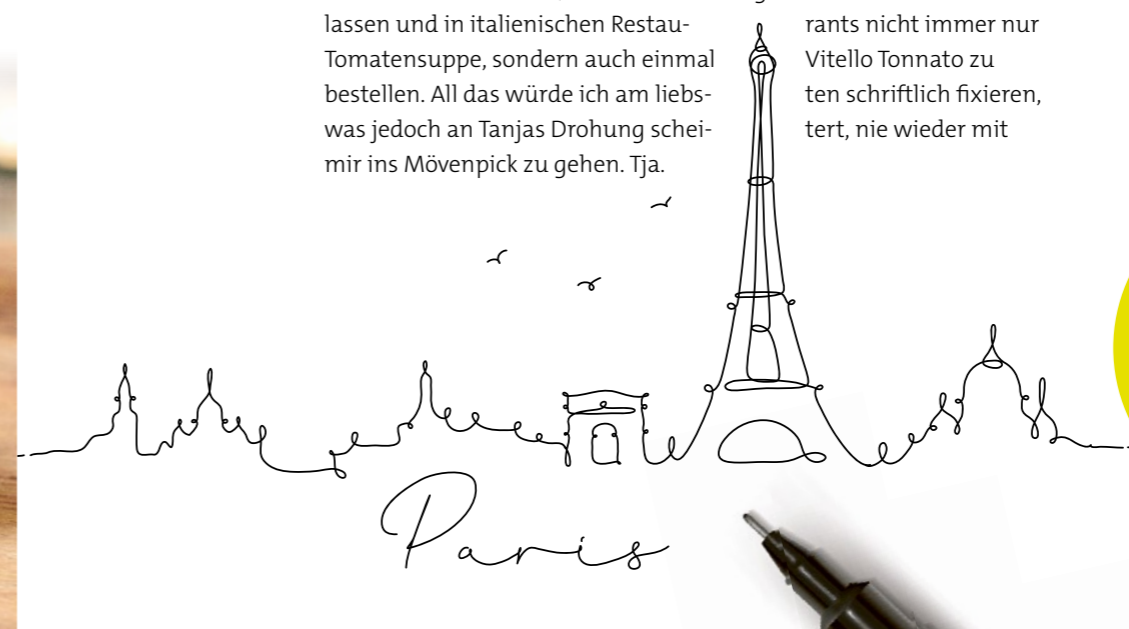 lassen und in italienischen Restau- rants nicht immer nur
Tomatensuppe, sondern auch einmal Vitello Tonnato zu
bestellen. All das würde ich am liebs- ten schriftlich fixieren,
was jedoch an Tanjas Drohung schei- tert, nie wieder mit
mir ins Mövenpick zu gehen. Tja.
Paris